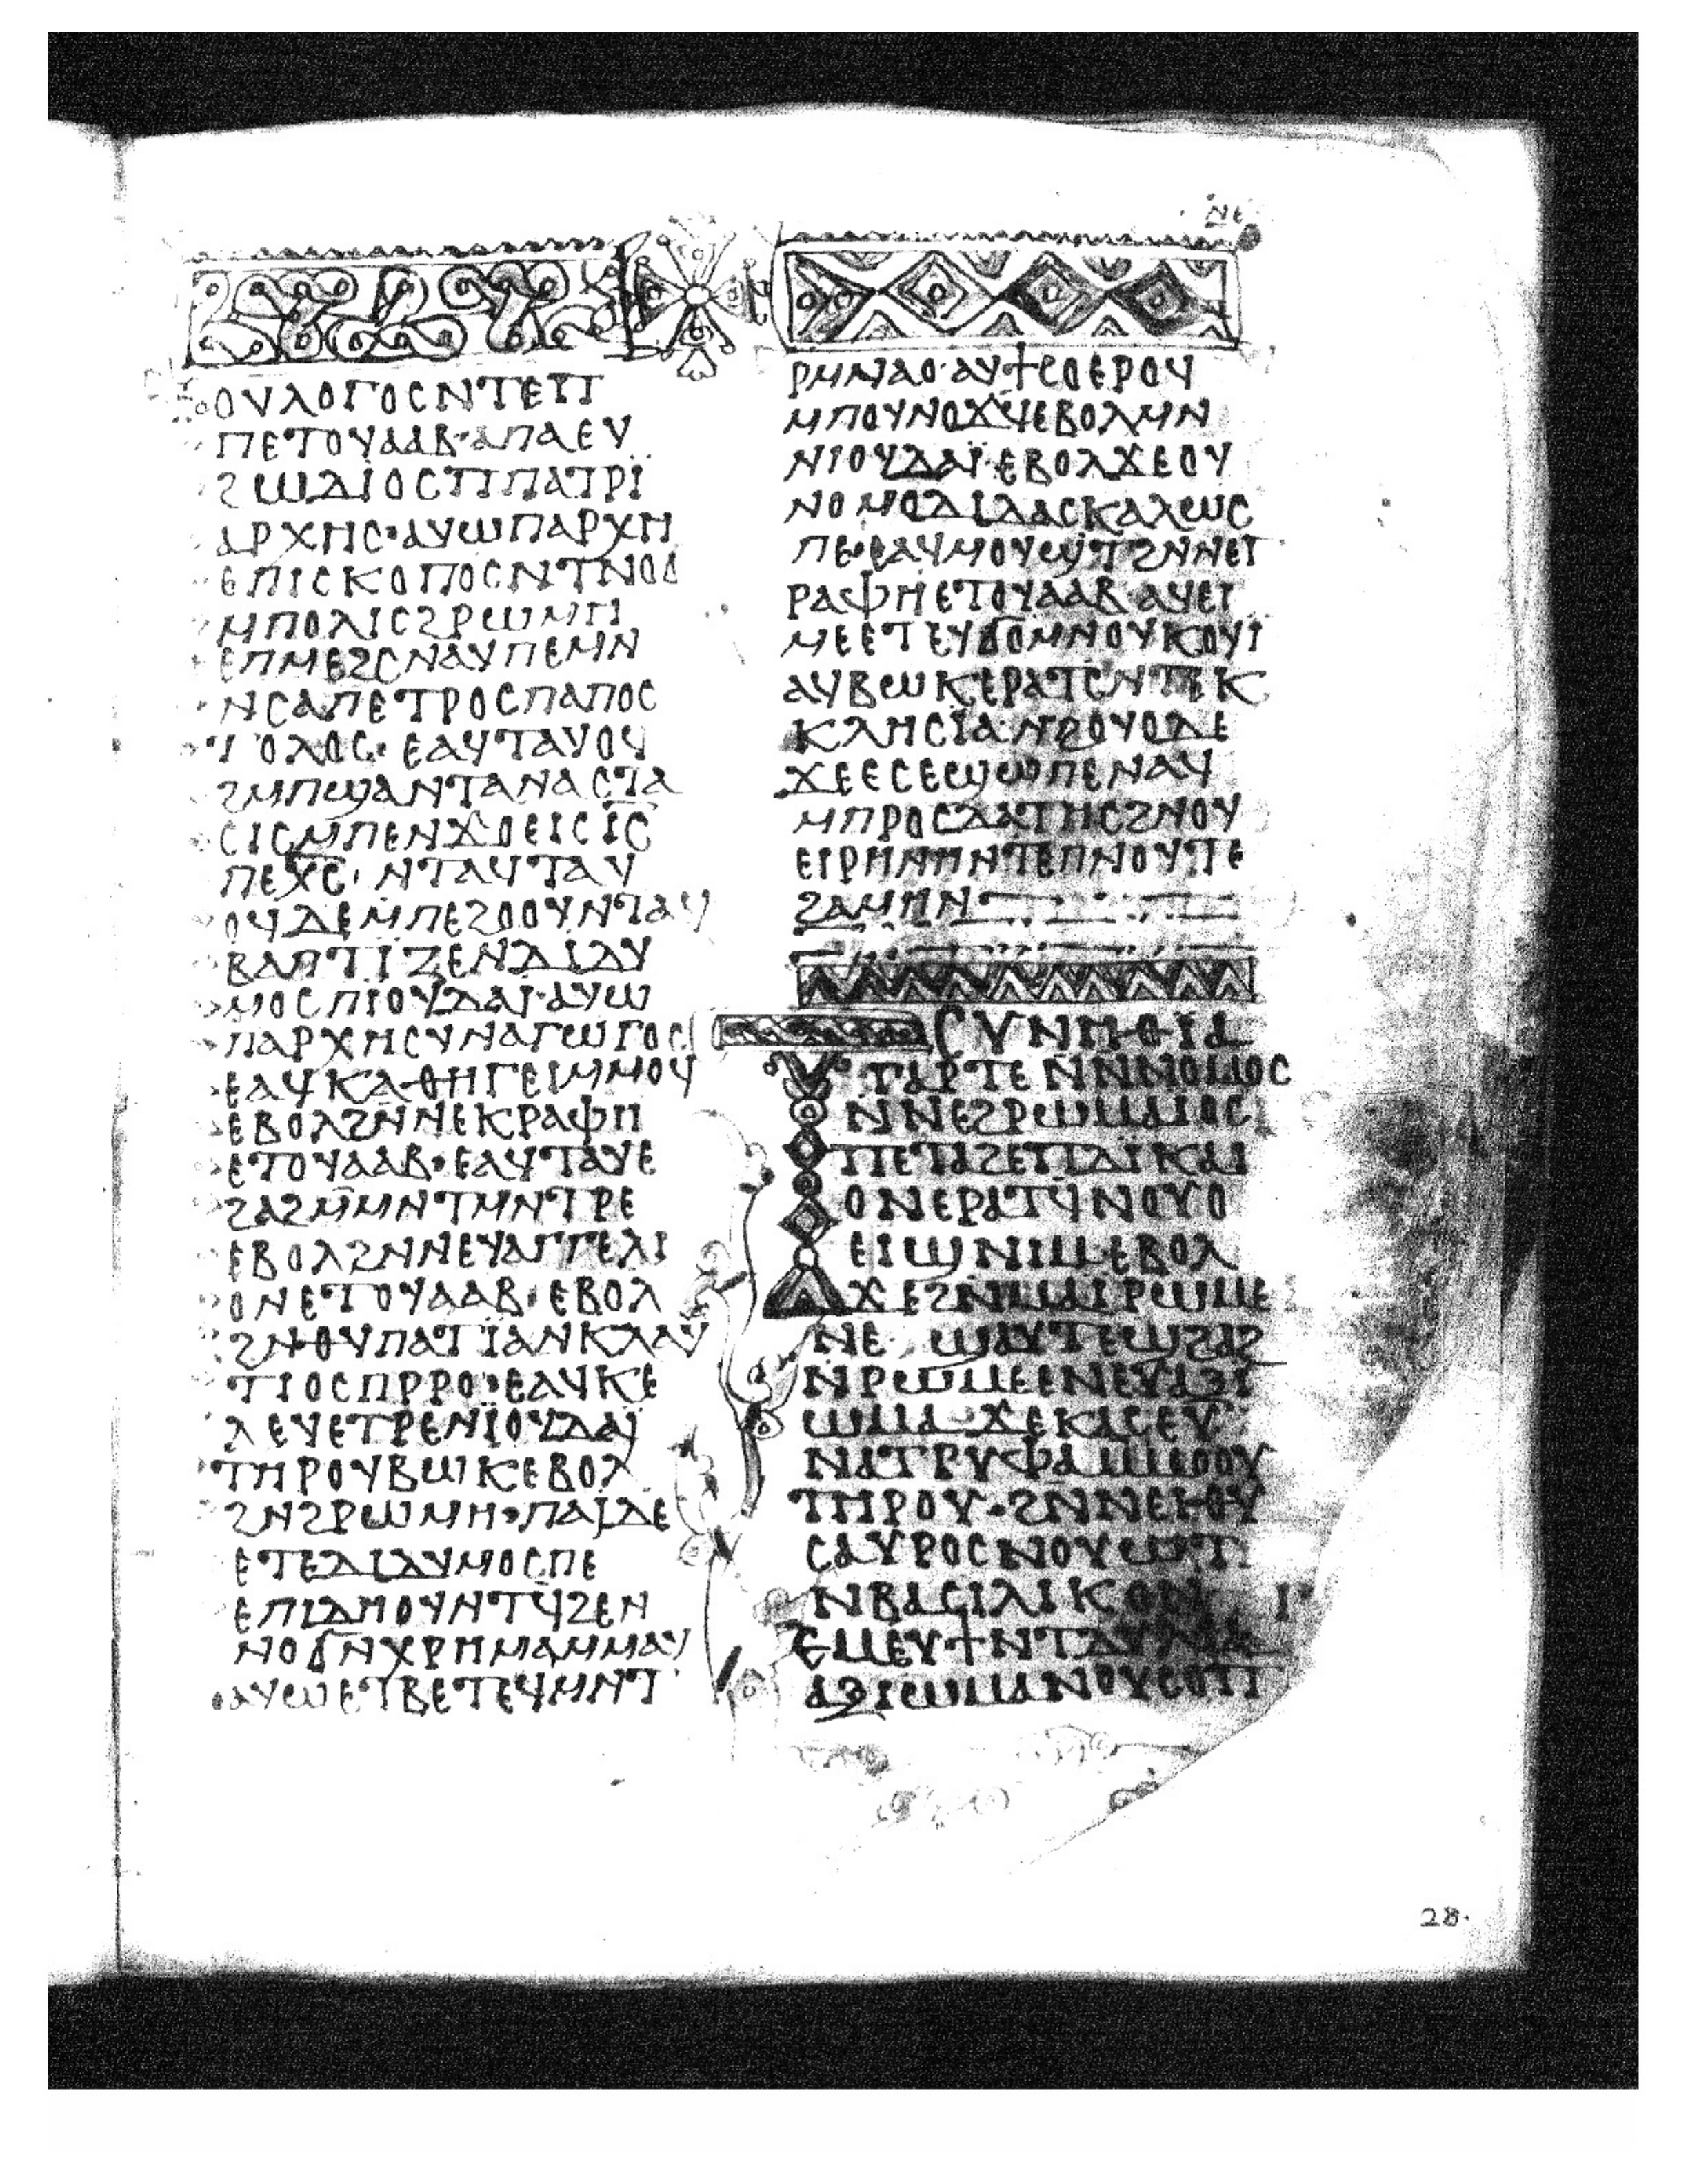 ⲛⲉ
ⲟⲩⲗⲟⲅⲟⲥ ⲛⲧⲉⲡ
ⲡⲉⲧⲟⲩⲁⲁⲃ· ⲁⲡⲁ ⲉⲩ
ϩⲱⲇⲓⲟⲥ ⲡⲡⲁⲧⲣⲓ̈
ⲁⲣⲭⲏⲥ· ⲁⲩⲱ ⲡⲁⲣⲭⲏ
ⲉⲡⲓⲥⲕⲟⲡⲟⲥ ⲛⲧⲛⲟϭ
ⲙⲡⲟⲗⲓⲥ ϩⲣⲱⲙⲏ
ⲉⲡⲙⲉϩⲥⲛⲁⲩ ⲡⲉ ⲙⲛ
ⲛⲥⲁ ⲡⲉⲧⲣⲟⲥ ⲡⲁⲡⲟⲥ
ⲧⲟⲗⲟⲥ· ⲉⲁϥⲧⲁⲩⲟϥ
ϩⲙ ⲡϣⲁ ⲛⲧⲁⲛⲁⲥⲧⲁ
ⲥⲓⲥ ⲙⲡⲉⲛϫⲟⲉⲓⲥ ⲓ̅ⲥ̅
ⲡⲉⲭ̅ⲥ̅· ⲛⲧⲁϥⲧⲁⲩ
ⲟϥ ⲇⲉ ⲙⲡⲉϩⲟⲟⲩ ⲛⲧⲁϥ
ⲃⲁⲡⲧⲓⲍⲉ ⲛⲇⲓⲇⲩ
ⲙⲟⲥ ⲡⲓⲟⲩⲇⲁⲓ̈· ⲁⲩⲱ
ⲡⲁⲣⲭⲏⲥⲩⲛⲁⲅⲱⲅⲟⲥ
ⲉⲁϥⲕⲁⲑⲏⲅⲉⲓ ⲙⲙⲟϥ
ⲉⲃⲟⲗ ϩⲛ ⲛⲉⲕⲣⲁⲫⲏ
ⲉⲧⲟⲩⲁⲁⲃ· ⲉⲁϥⲧⲁⲩⲉ
ϩⲁϩ ⲙⲙⲛⲧⲙⲛⲧⲣⲉ
ⲉⲃⲟⲗ ϩⲛ ⲛⲉⲩⲁⲅⲅⲉⲗⲓ
ⲟⲛ ⲉⲧⲟⲩⲁⲁⲃ· ⲉⲃⲟⲗ
ϩⲛ ⲑⲩⲡⲁⲧⲓ̈ⲁ ⲛⲕⲗⲁⲩ
ⲧⲓⲟⲥ ⲡⲣⲣⲟ· ⲉⲁϥⲕⲉ
ⲗⲉⲩⲉ ⲉⲧⲣⲉ ⲛⲓ̈ⲟⲩⲇⲁⲓ̈
ⲧⲏⲣⲟⲩ ⲃⲱⲕ ⲉⲃⲟⲗ
ϩⲛ ϩⲣⲱⲙⲏ· ⲡⲁⲓ̈ ⲇⲉ
ⲉⲧⲉ ⲇⲓⲇⲩⲙⲟⲥ ⲡⲉ
ⲉⲡⲓⲇⲏ ⲟⲩⲛⲧϥ ϩⲉⲛ
ⲛⲟϭ ⲛⲭⲣⲏⲙⲁ ⲙⲙⲁⲩ
ⲁⲩⲱ ⲉⲧⲃⲉ ⲧⲉϥⲙⲛⲧ
ⲣⲙⲙⲁⲟ· ⲁⲩϯⲥⲟ ⲉⲣⲟϥ
ⲙⲡⲟⲩⲛⲟϫϥ ⲉⲃⲟⲗ ⲙⲛ
ⲛⲓⲟⲩⲇⲁⲓ̈· ⲉⲃⲟⲗ ϫⲉ ⲟⲩ
ⲛⲟⲙⲟⲇⲓⲇⲁⲥⲕⲁⲗⲱⲥ
ⲡⲉ· ⲉⲁϥⲙⲟⲩϣⲧ ϩⲛ ⲛⲉⲅ
ⲣⲁⲫⲏ ⲉⲧⲟⲩⲁⲁⲃ ⲁϥⲉⲓ
ⲙⲉ ⲉⲧⲉⲩϭⲟⲙ ⲛⲟⲩⲕⲟⲩⲓ
ⲁϥⲃⲱⲕ ⲉⲣⲁⲧⲥ ⲛⲧⲉⲕ
ⲕⲗⲏⲥⲓ̈ⲁ· ⲛϩⲟⲩⲟ ⲇⲉ
ϫⲉ ⲉⲥⲉϣⲱⲡⲉ ⲛⲁϥ
ⲙⲡⲣⲟⲥⲇⲁⲧⲏⲥ ϩⲛ ⲟⲩ
ⲉⲓⲣⲏⲛⲏ ⲛⲧⲉ ⲡⲛⲟⲩⲧⲉ
ϩⲁⲙⲏⲛ
ⲥⲩⲛⲏⲑⲓⲁ
ⲅⲁⲣ ⲧⲉ ⲛⲛⲛⲟⲙⲟⲥ
ⲛⲛⲉϩⲣⲱⲙⲁⲓⲟⲥ
ⲡⲉⲧⲁϩⲉ ⲡⲇⲓⲕⲁⲓ
ⲟⲛ ⲉⲣⲁⲧϥ ⲛⲟⲩⲟ
ⲉⲓϣ ⲛⲓⲙ· ⲉⲃⲟⲗ
ϫⲉ ϩⲛⲙⲁⲓⲣⲱⲙⲉ
ⲛⲉ· ϣⲁⲩⲧⲉϣ ϩⲁϩ
ⲛⲣⲱⲙⲉ ⲉⲛⲉⲩⲁⲝⲓ
ⲱⲙⲁ ϫⲉⲕⲁⲥ ⲉⲩ
ⲛⲁⲧⲣⲩⲫⲁ ⲙⲙⲟⲟⲩ
ⲧⲏⲣⲟⲩ· ϩⲛ ⲛⲉⲓⲑⲩ
ⲥⲁⲩⲣⲟⲥ ⲛⲟⲩⲱⲧ
ⲛⲃⲁⲥⲓⲗⲓⲕⲟⲛ
ⲉⲙⲉⲩϯ ⲛⲧⲁⲩ
ⲁⲝⲓⲱⲙⲁ ⲛⲟⲩⲥⲟⲡ
28.